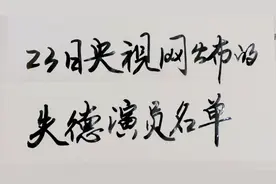 23日央视网公布的
失德演员名单